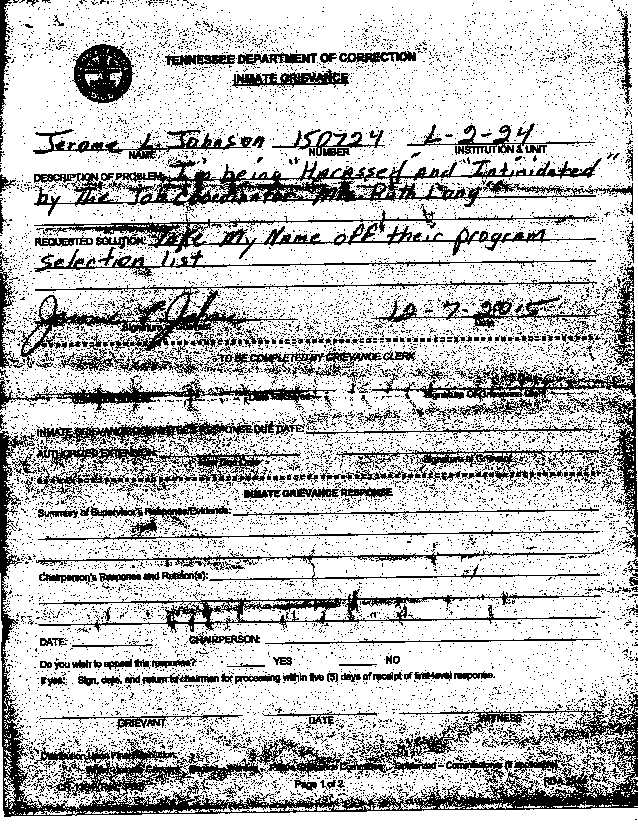 TENNESSEE DEPARTMENT OF CORRECTION
INMATE GRIEVANCE
Jerome L. Johnson 150724 L-2-24
NAME NUMBER INSTITUTION & UNIT
DESCRIPTION OF PROBLEM: I'm being "Harassed" and "Intimidated"
by The Job Coordinator Mrs. Ruth Long
REQUESTED SOLUTION: Take My Name off their program
selection list
10-7-2015
Date
TO BE COMPLETED BY GRIEVANCE CLERK
Signature Of Grievance Clerk
INMATE GRIEVANCE COMMITTEE'S RESPONSE DUE DATE:
AUTHORIZED EXTENSION:
Signature of Grievant
INMATE GRIEVANCE RESPONSE
Summary of Supervisor's Response/Evidence:
Chairperson's Response and Reason(s):
DATE: CHAIRPERSON:
Do you wish to appeal this response? YES NO
If yes: Sign, date, and return to chairman for processing within five (5) days of receipt of first-level response.
GRIEVANT DATE WITNESS
Page 1 of 2